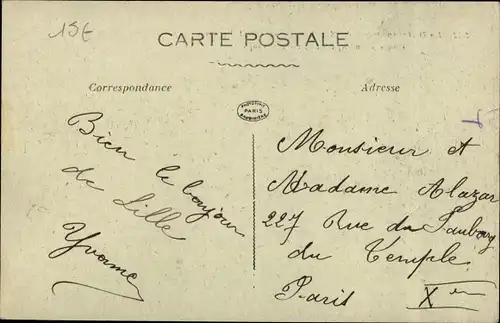 15E
CARTE POSTALE
Correspondance
Adresse
PARIS
Bien le bonjour
de Lille
Yvonne
Monsieur et
Madame Alazar
227 Rue du Faubourg
du Temple
Paris Xem